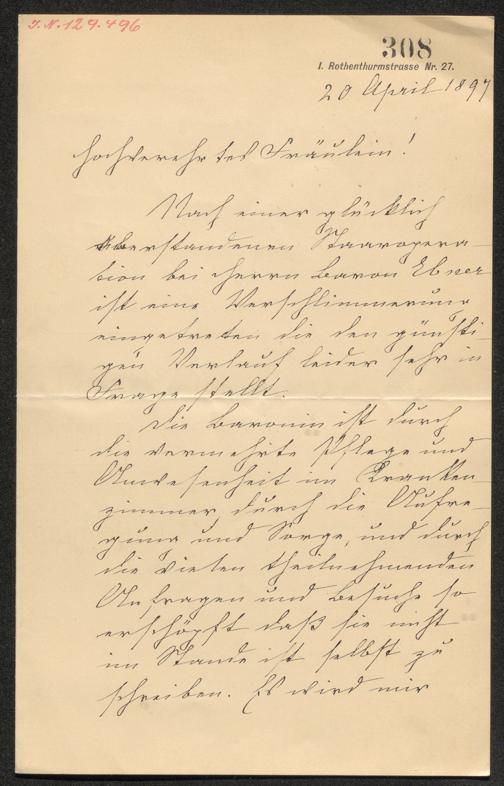 I. N. 129.496
308
I. Rothenthurmstrasse Nr. 27.
20 April 1897
Hochverehrtes Fräulein!
Nach einer glücklich
überstandenen Staaropera-
tion bei Herrn Baron Ebner
ist eine Verschlimmerung
eingetreten die den günsti-
gen Verlauf leider sehr in
Frage stellt.
Die Baronin ist durch
die vermehrte Pflege und
Anwesenheit im Kranken
zimmer durch die Aufre-
gung und Sorge, und durch
die vielen theilnehmenden
Anfragen und Besuche so
erschöpft daß sie nicht
im Stande ist selbst zu
schreiben. Es wird mir